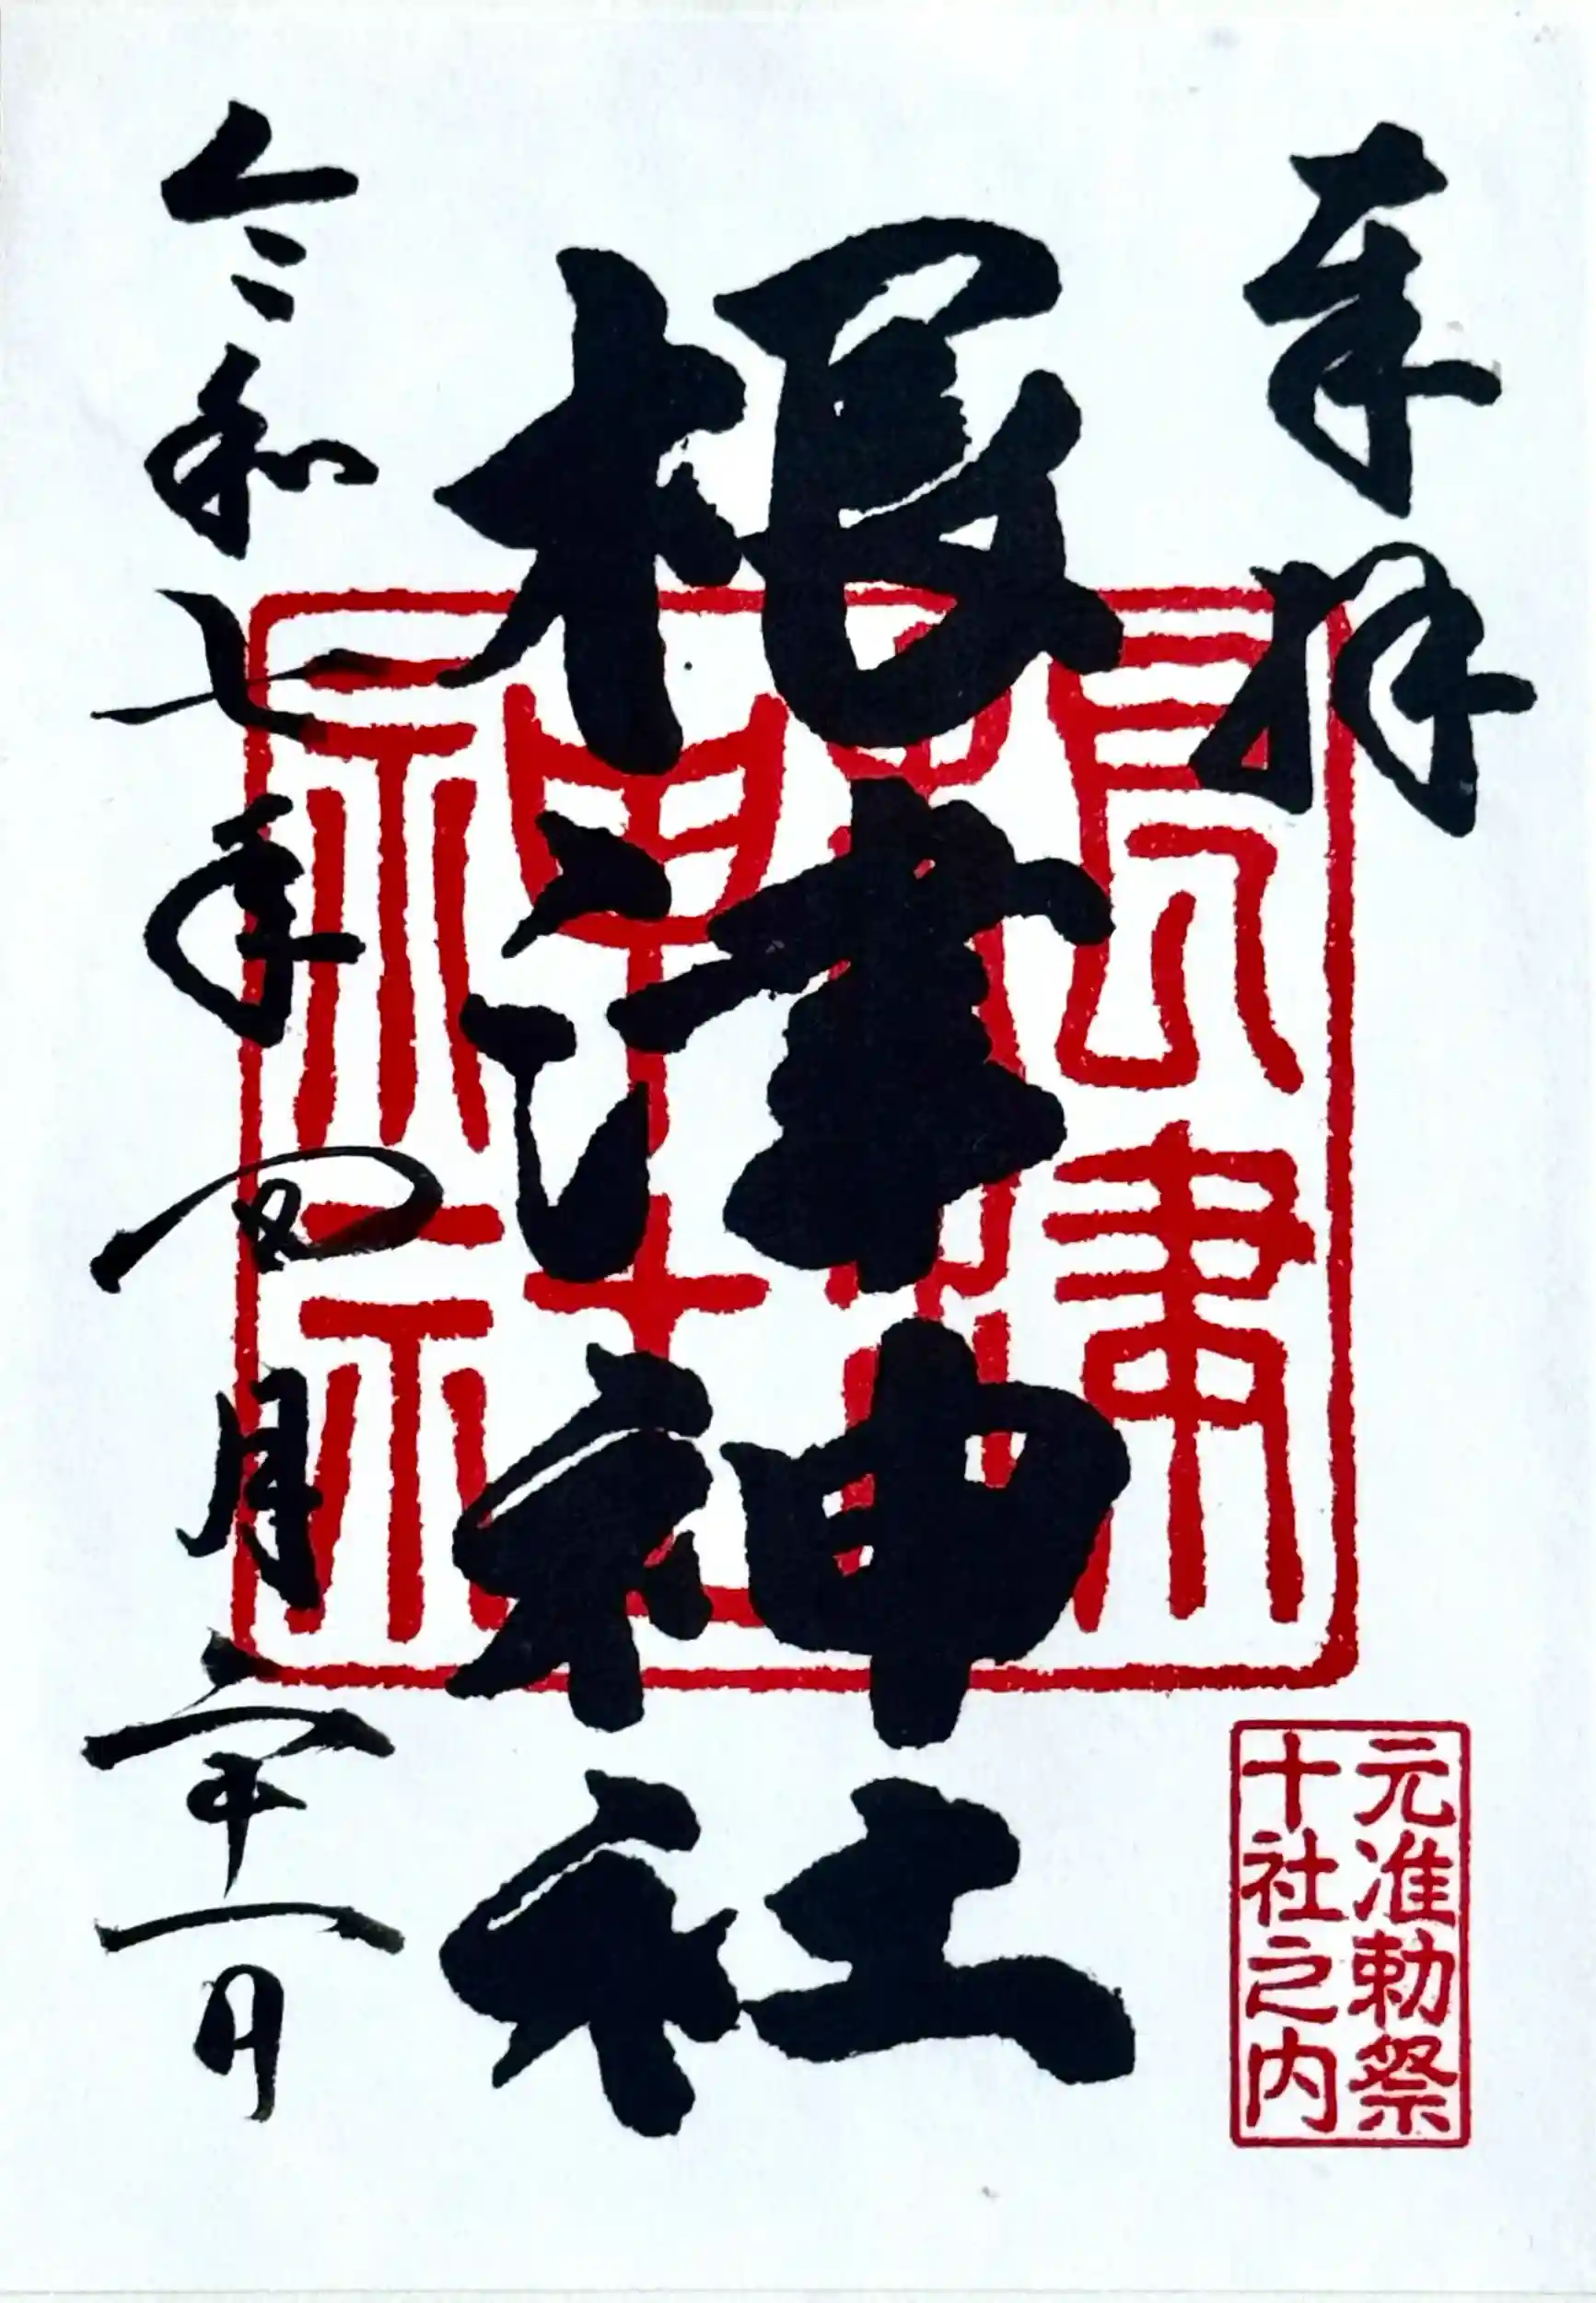 奉拝
根津神社
令和七年四月二十一日
根津
神社
元准勅祭
十社之内